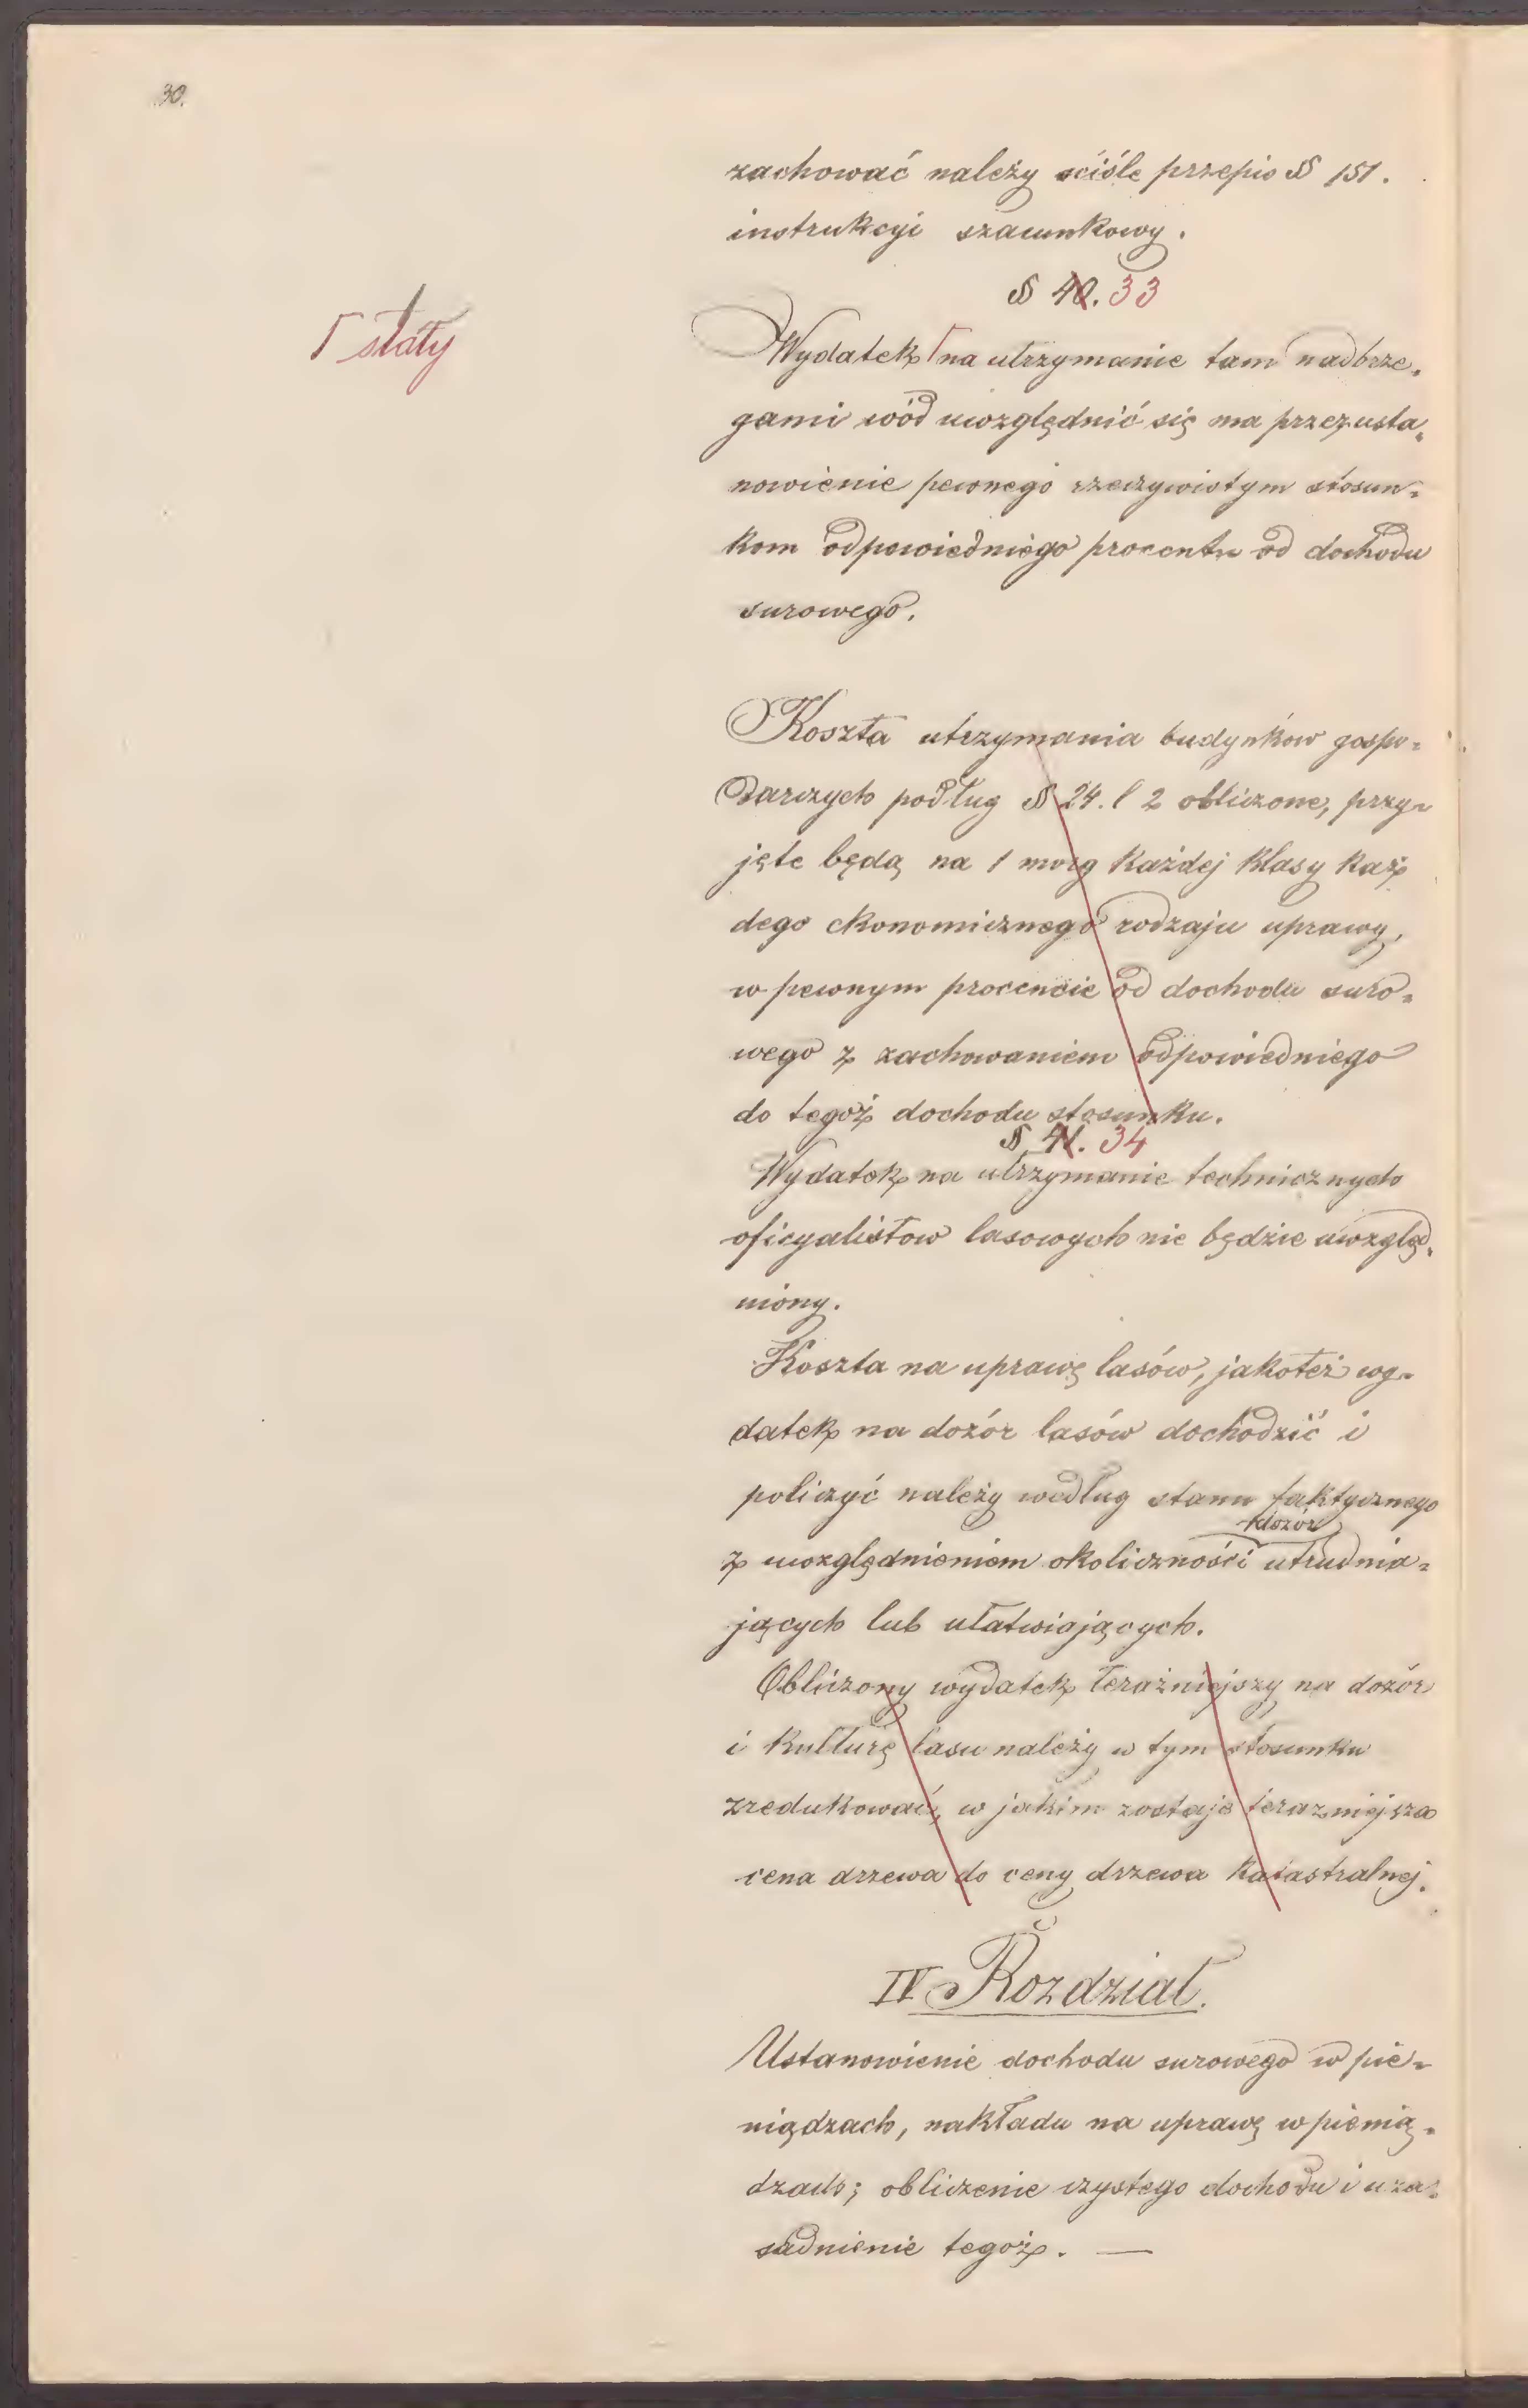 30.
zachować należy ściśle przepis § 151.
instrukcyi szacunkowy.
§ 40. 33
Γ stały
Wydatek Γ na utrzymanie tam nadbrze-
gami wód uwzględnić się ma przez usta-
nowienie pewnego rzeczywistym stosun-
kom odpowiedniego procentu od dochodu
surowego.
Koszta utrzymania budynkow gospo-
darczych podług § 24. l 2 obliczone, przy-
jęte będą na 1 morg każdej klasy każ
dego ekonomicznego rodzaju uprawy,
w pewnym procencie od dochodu suro-
wego z zachowaniem odpowiedniego
do tegoż dochodu stosunku.
§ 41. 34
Wydatek na utrzymanie technicznych
oficyalistow lasowych nie będzie uwzględ-
niony.
Koszta na uprawę lasów, jakoteż wy-
datek na dozór lasów dochodzić i
policzyć należy według stanu faktycznego
dozór
z uwzględnieniem okoliczności utrudnia-
jących lub ułatwiających.
Obliczony wydatek teraźniejszy na dozór
i kulturę lasu należy w tym stosunku
zredukować, w jakim zostaje terazniejsza
cena drzewa do ceny drzewa katastralnej.
IV Rozdział.
Ustanowienie dochodu surowego w pie-
niądzach, nakładu na uprawę w pienią-
dzach; obliczenie czystego dochodu i uza-
sadnienie tegoż. —